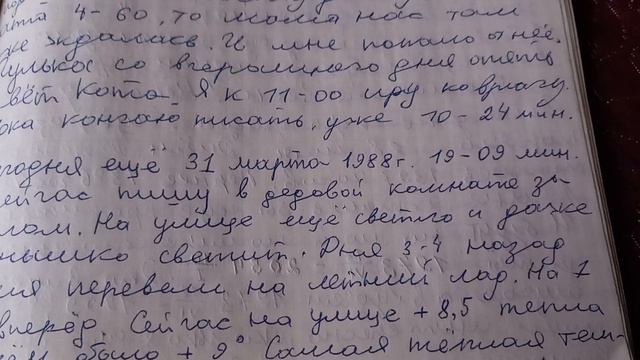 4-60, то мама нас там
же ждалась. И мне попало от неё.
Мулька со вчерашнего дня опять
Кота. Я к 11-00 иду ко врачу.
пока кончаю писать, уже 10-24 мин.
годня ещё 31 марта 1988 г. 19-09 мин.
ейчас пишу в дедовой комнате за
лом. На улице ещё светло и даже
нышко светит. Дня 3-4 назад
мя перевели на летний лад. На 1
вперёд. Сейчас на улице +8,5 тепла
было +9° Самая тёплая тем-